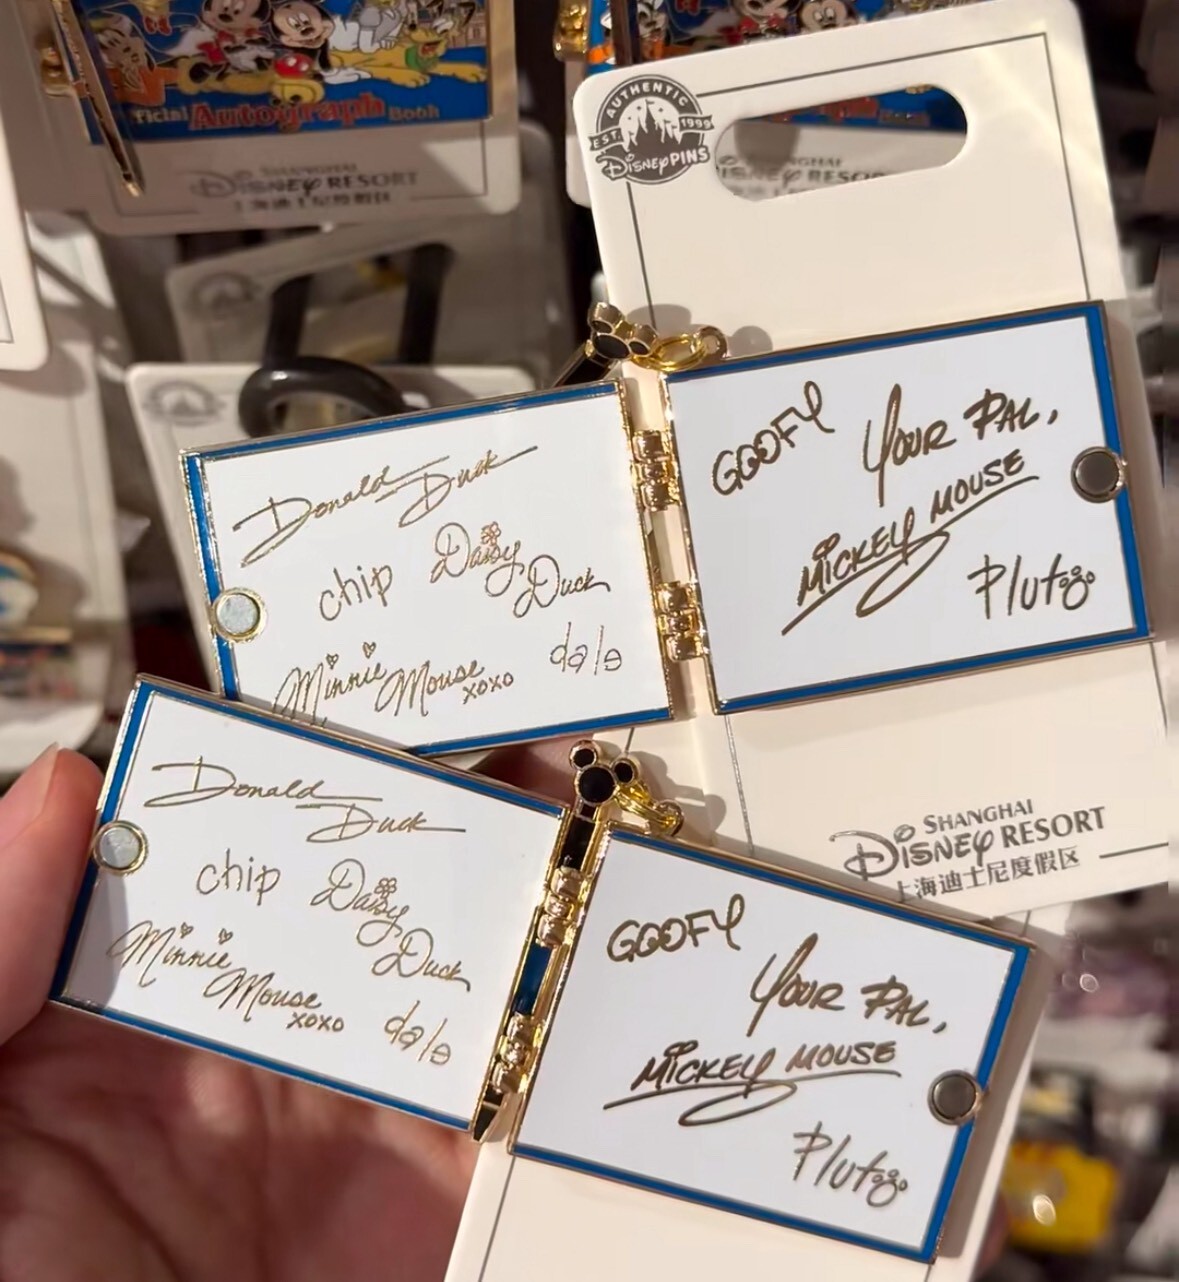 Official Autograph Book
SHANGHAI
Disney RESORT
AUTHENTIC
EST. 1999
Disney PINS
SHANGHAI
Disney RESORT
Donald Duck
chip
Daisy
Duck
Minnie Mouse
xoxo
dale
GOOFY
YOUR PAL,
MICKEY MOUSE
Pluto
SHANGHAI
Disney RESORT
上海迪士尼度假区
Donald
Duck
chip
Daisy
Duck
Minnie
Mouse
xoxo
dale
GOOFY
YOUR PAL,
MICKEY MOUSE
Pluto